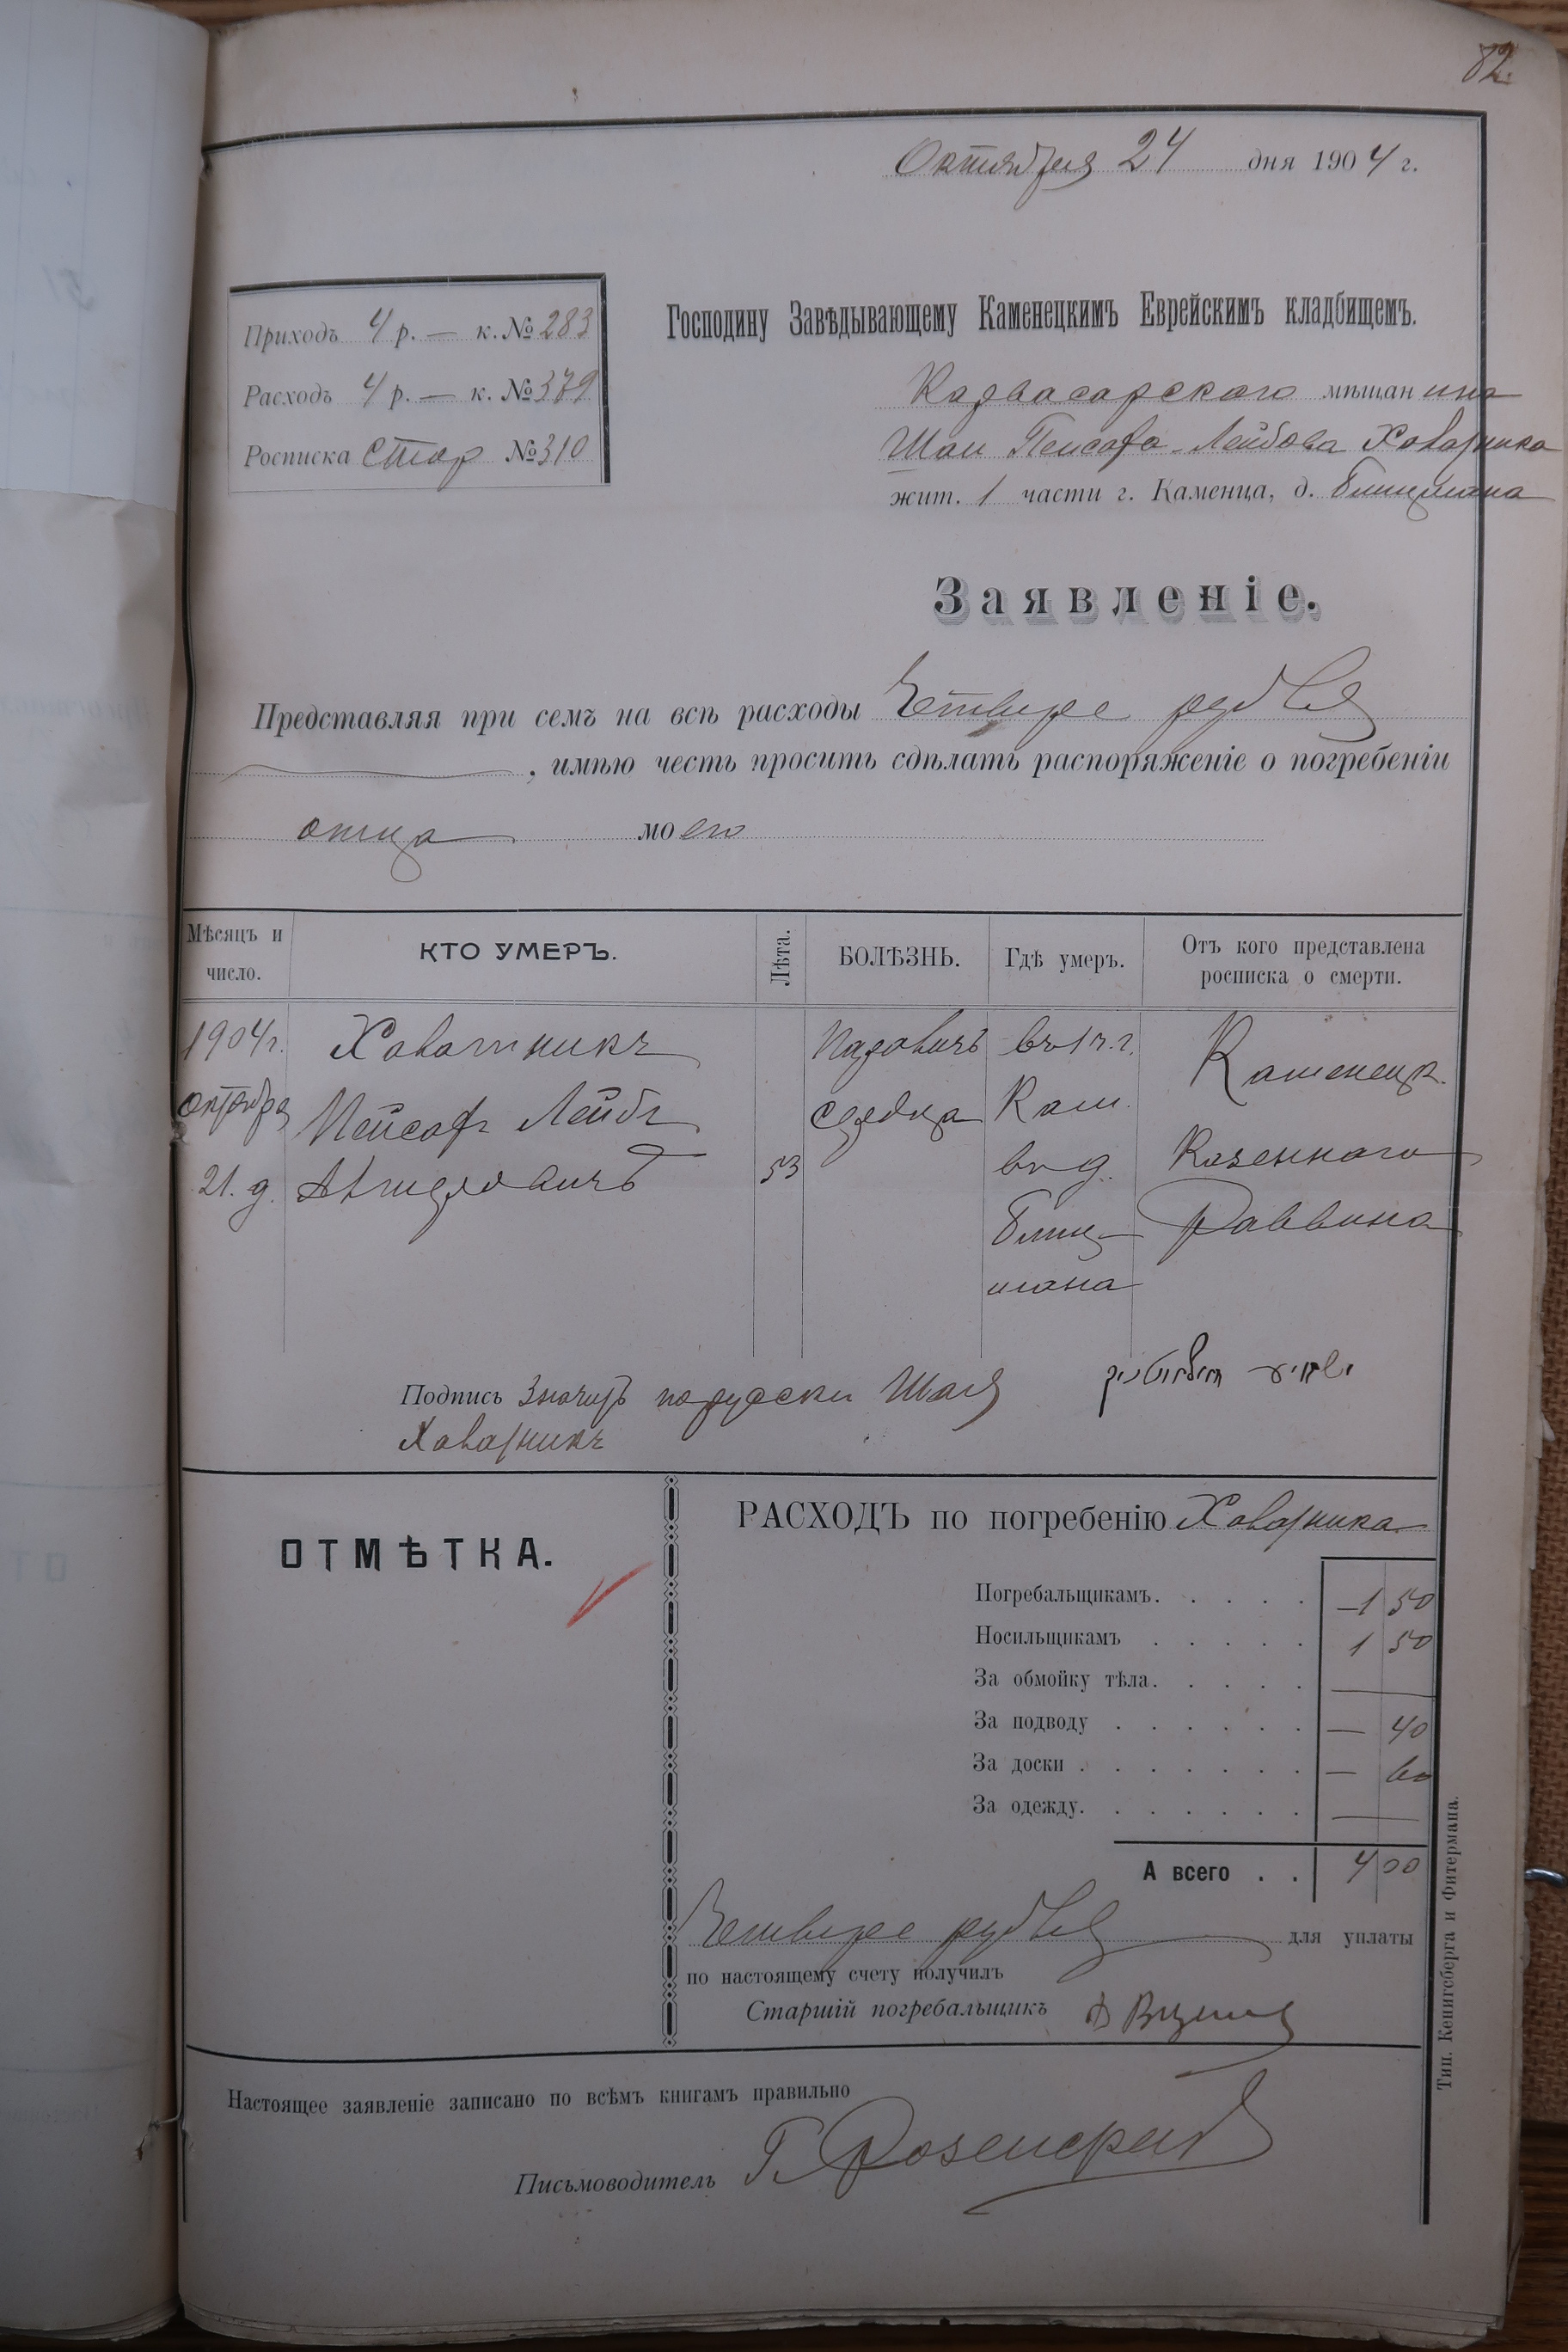 82.
Октября 24 дня 1904 г.
Приходъ 4 р. — к. № 283
Расходъ 4 р. — к. № 379
Росписка стар № 310
Господину Завѣдывающему Каменецкимъ Еврейскимъ кладбищемъ.
Карвасарского мѣщанина
Шаи Пейсаха-Лейбова Ховатника
жит. 1 части г. Каменца, д. Блицмана
Заявленіе.
Представляя при семъ на всѣ расходы Четыре рубля
, имѣю честь просить сдѣлать распоряженіе о погребеніи
отца моего
Мѣсяцъ и число.
КТО УМЕРЪ.
Лѣта.
БОЛѢЗНЬ.
Гдѣ умеръ.
Отъ кого представлена росписка о смерти.
1904 г. Ховатникъ въ 1 ч. г. Каменецк.
октября Лейбъ сердца Кам.
21. д. 53 въ д. Казеннаго
Блиц- Раввина
мана
Подпись значитъ по русски Шая
Ховатникъ
ОТМѢТКА.
РАСХОДЪ по погребенію Ховатника
Погребальщикамъ. 1 50
Носильщикамъ 1 50
За обмойку тѣла. —
За подводу — 40
За доски — 60
За одежду. —
А всего . . 4 00
Четыре рубля для уплаты
по настоящему счету получилъ
Старшій погребальщикъ
Настоящее заявленіе записано по всѣмъ книгамъ правильно
Письмоводитель Г.
Тип. Кенигсберга и Фитермана.